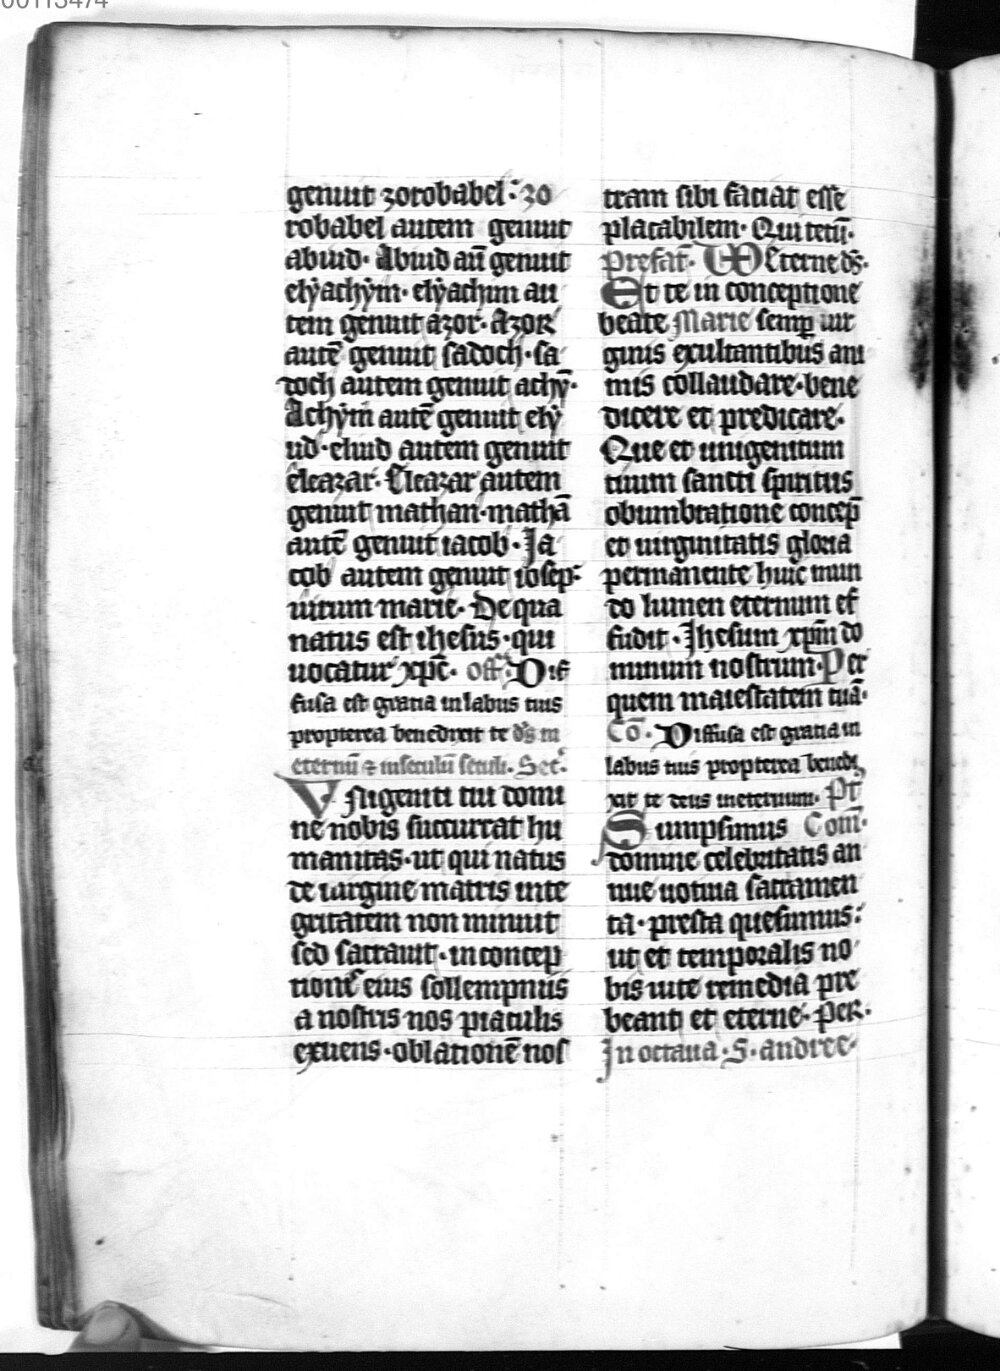 00113474
genuit zorobabel · zo
robabel autem genuit
abiud · Abiud aū genuit
elyachym · elyachim au
tem genuit azor · Azor
autē genuit sadoch · sa
doch autem genuit achȳ ·
Achym autē genuit ely
ud · eliud autem genuit
eleazar · Eleazar autem
genuit mathan · mathā
autē genuit iacob · Ja
cob autem genuit iosep
uirum marie · De qua
natus est ihesus · qui
uocatur xp̄c · off · Dif
fusa est gratia in labiis tuis
propterea benedixit te ds̄ in
eternū ⁊ in seculū seculi · Sec̄ ·
Vnigeniti tui domi
ne nobis succurrat hu
manitas · ut qui natus
de uirgine matris inte
gritatem non minuit
sed sacrauit · in concep
tionē eius sollempniis
a nostris nos piaculis
exuens · oblationē nos
tram sibi faciat esse
placabilem · Qui tecū ·
Prefat̄ · VD Eterne ds̄ ·
Et te in conceptione
beate Marie semꝑ uir
ginis exultantibus ani
mis collaudare · bene
dicere et predicare ·
Que et unigenitum
tuum sancti spiritus
obumbratione concep̄
et uirginitatis gloria
permanente huic mun
do lumen eternum ef
fudit · Jhesum xp̄m do
minum nostrum · Per
quem maiestatem tuā ·
Cō · Diffusa est gratia in
labiis tuis propterea bened
xit te deus in eternum · Pt̄
Sumpsimus Com̄ ·
domine celebritatis an
nue uotiua sacramen
ta · presta quesumus ·
ut et temporalis no
bis uite remedia pre
beant et eterne · Per ·
In octaua · S · andree ·